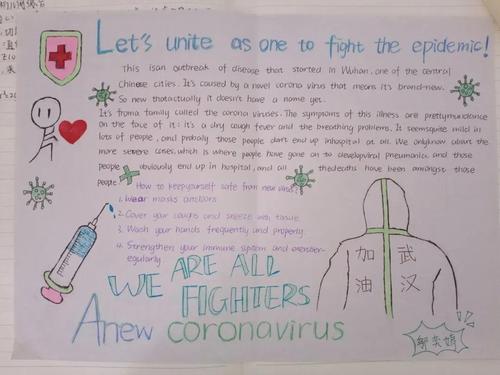 Let's unite as one to fight the epidemic!
This isan outbreak of disease that started in Wuhan, one of the central
Chinese cities. It's caused by a novel corona virus that means it's brand-new.
So new thatactually it doesn't have a name yet.
It's froma family called the corona viruses. The symptoms of this illness are prettymundance
on the face of it: it's a dry cough fever and the breathing problems. It seemsquite mild in
lots of people, and probaly those people don't end up inhospital at all. We onlyknow about the
more severe cases, which is where people have gone on to developviral pneumania and those
people obviously end up in hospital, and all thedeaths have been amongst those
people
How to keepyourself safe from new virus?
1. Wear masks
2. Cover your coughs and sneeze with tissue
3. Wash your hands frequently and properly.
4. Strengthen your immune system and
egularly
加 武
油 汉
WE ARE ALL
FIGHTERS
A new coronavirus